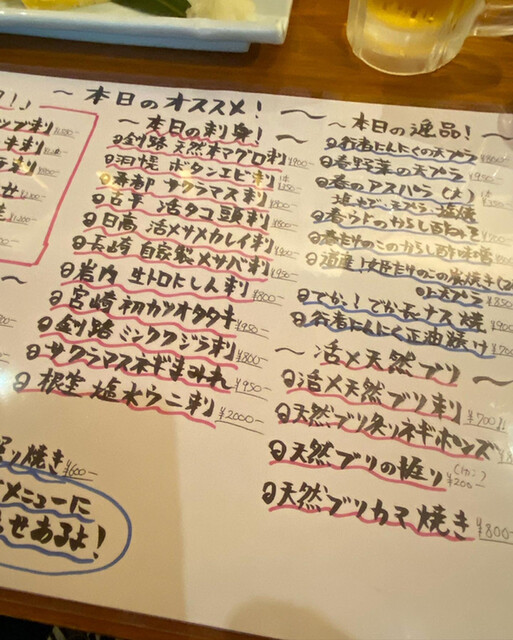 ～本日のオススメ！
～本日の刺身！
釧路 天然本マグロ刺 ¥900-
羽幌 ボタンエビ刺
寿都 サクラマス刺
古平 活タコ頭刺
日高 活〆サメカレイ刺
長崎 自家製〆サバ刺
岩内 生トロにしん刺 ¥800-
宮崎 初カツオタタキ ¥950-
釧路 ミンククジラ刺 ¥800-
サクラマスネギまみれ ¥950-
根室 塩水ウニ刺 ¥2000-
焼き ¥600-
メニューに
せあるよ！
～本日の逸品！
行者にんにくの天プラ
春野菜の天プラ
春のアスパラ(大)
塩ゆで・天プラ・塩焼
春ウドのからし酢みそ
春たけのこのからし酢味噌
道産！姫たけのこの炭焼き
天プラ ¥850
でかっ！でか長ナス焼 ¥900
行者にんにく正油漬け
～活〆天然ブリ～
活〆天然ブリ刺 ¥700
天然ブリ炙りネギポンズ
天然ブリの握り ¥200-
天然ブリカマ焼き ¥800-